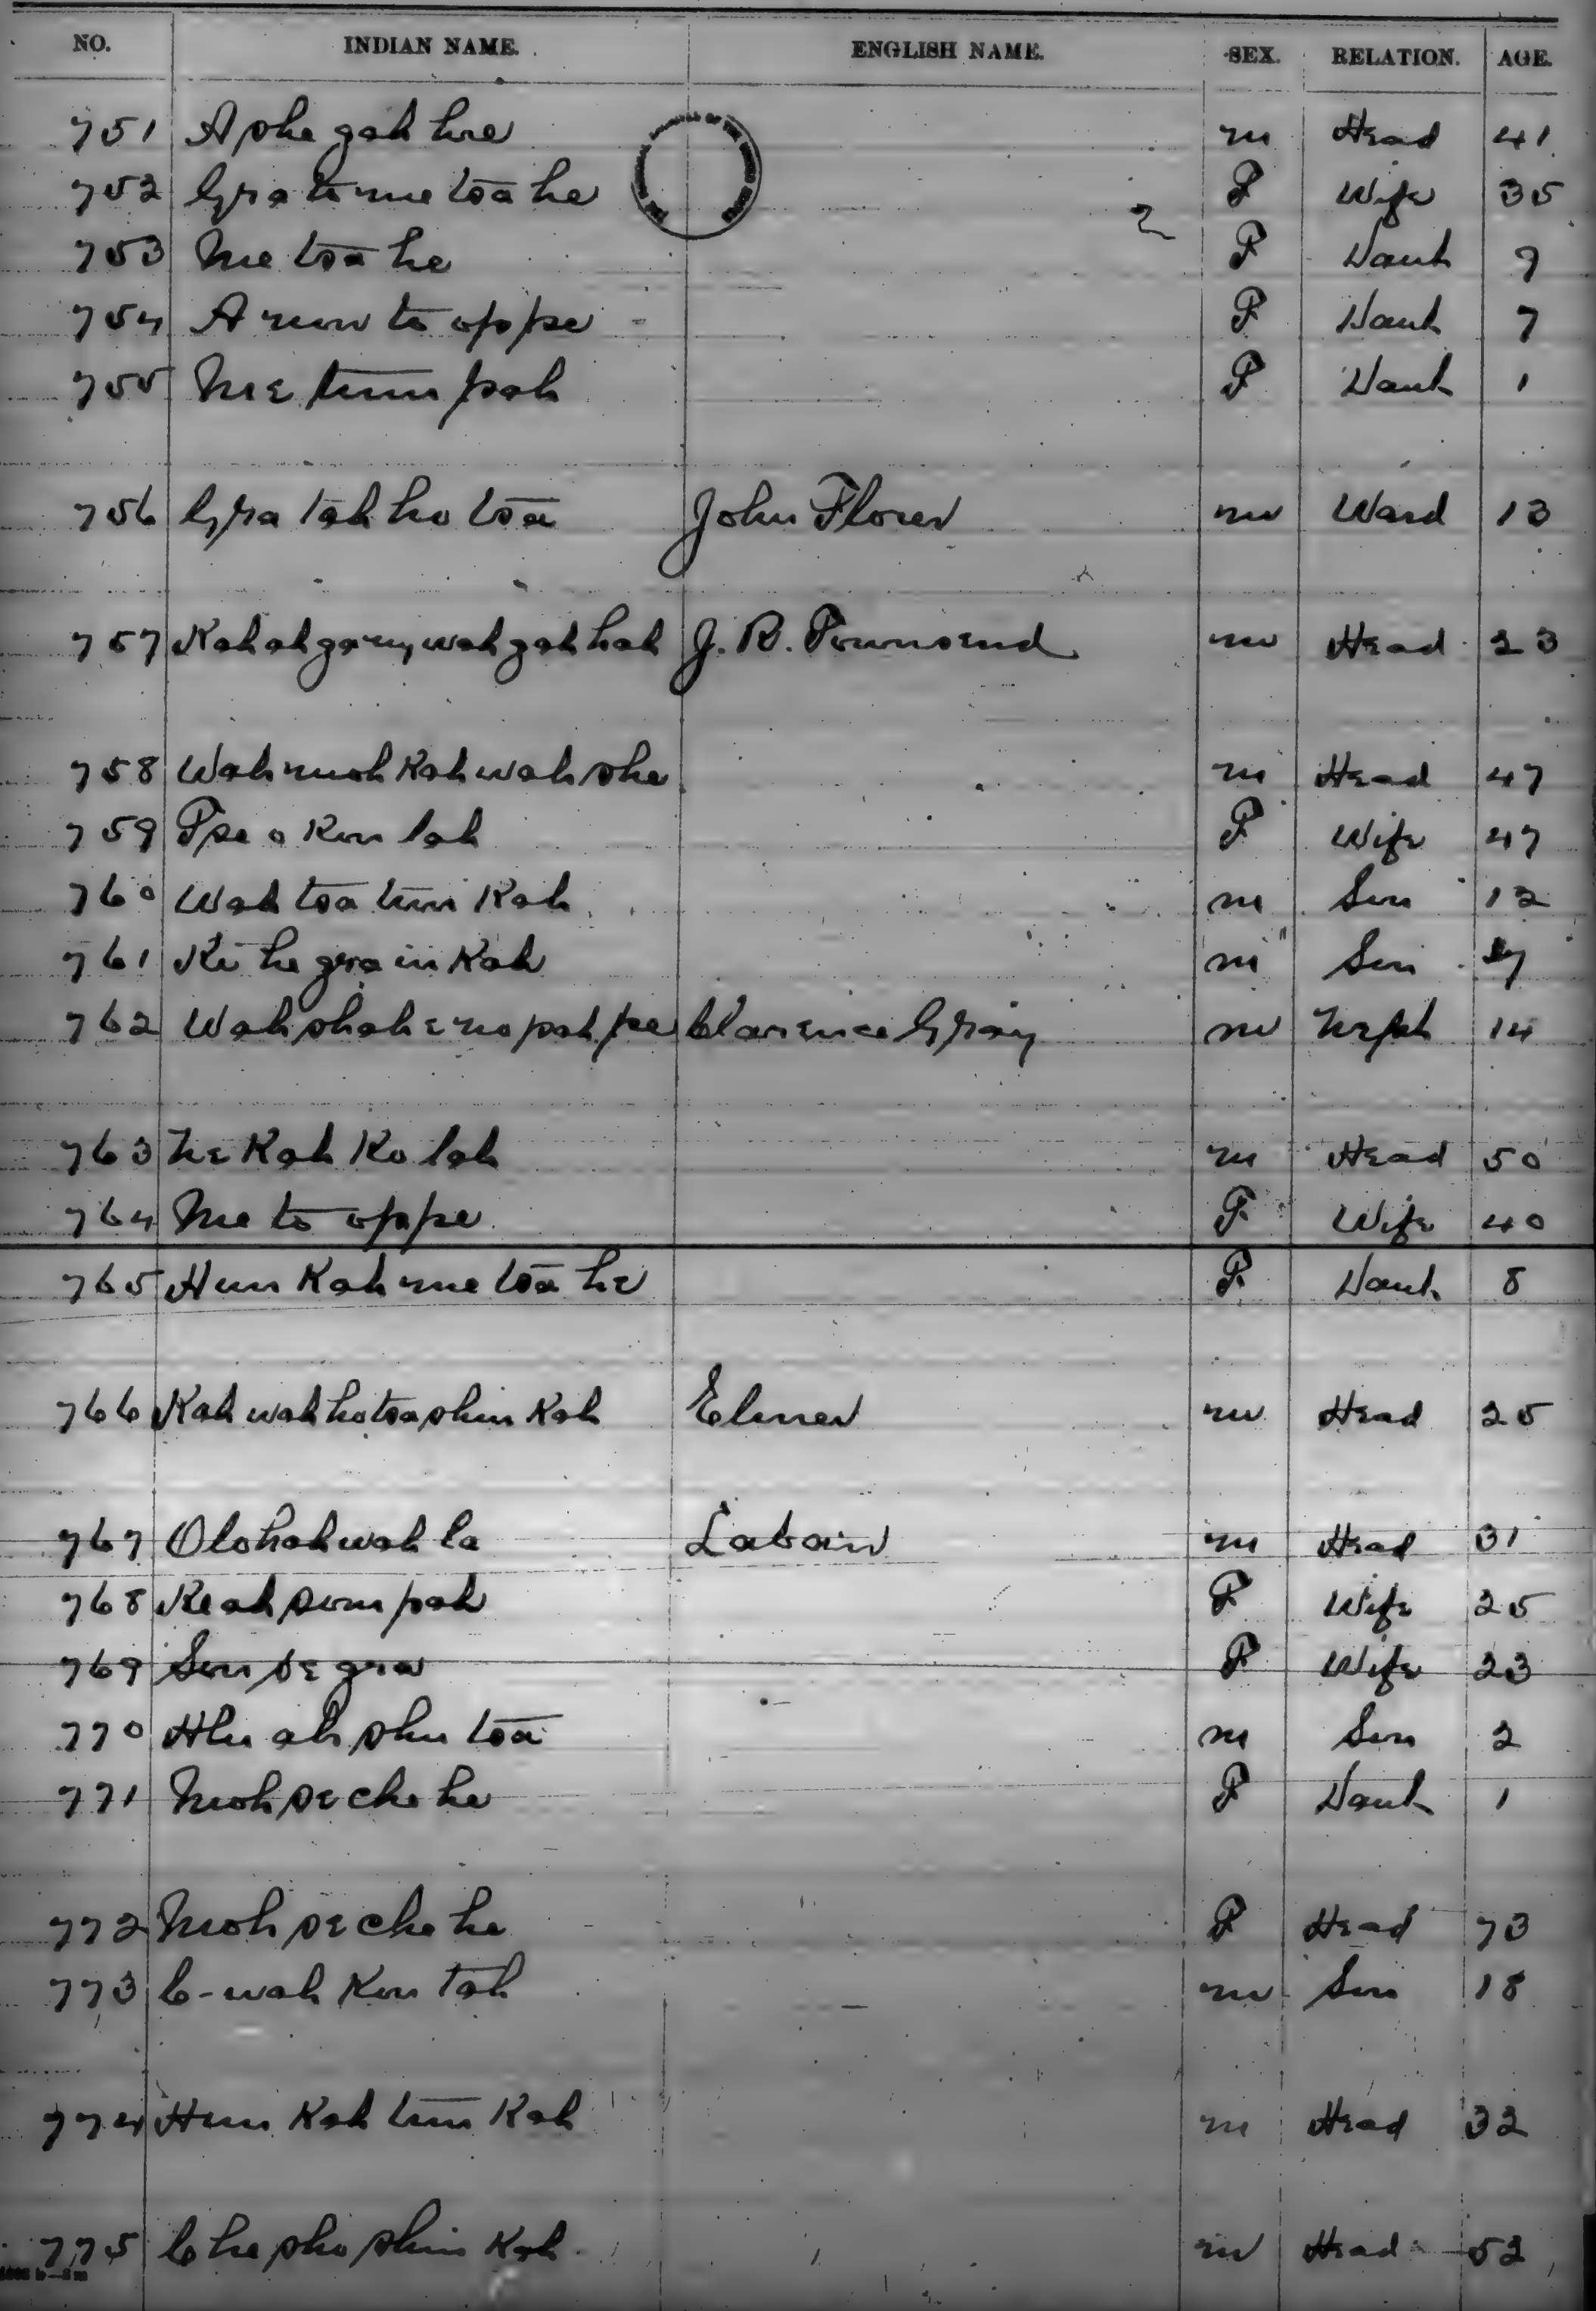 NO. INDIAN NAME. ENGLISH NAME. SEX. RELATION. AGE.
751 A she gah hre m Head 41
752 Gra to me tsa he F Wife 35
753 Me tsa he F Daut 9
754 A non to op pe F Daut 7
755 Me tum pah F Daut 1
756 Gra tah ho tsa John Florer m Ward 13
757 Kah ah gony wah gah hah J. R. Townsend m Head 23
758 Wah moh Kah wah she m Head 47
759 Pse o Kon lah F Wife 47
760 Wah tsa tun Kah m Son 12
761 Ki he gra in Kah m Son
762 Wah shah e no pah pe Clarence Gray m Neph 14
763 Ne Kah Ko lah m Head 50
764 Me to op pe F Wife 40
765 Hun Kah me tsa he F Daut 8
766 Kah wah ho tsa shin Kah Elmer m Head 25
767 Olohah wah la Laban m Head 31
768 Ke ah som pah F Wife 25
769 Son se gra F Wife 23
770 Hlu ah shu tsa m Son 2
771 Moh se che he F Daut 1
772 Moh se che he F Head 73
773 C-wah Kon tah m Son 18
774 Hun Kah tun Kah m Head 32
775 Che sho shin Kah m Head 52